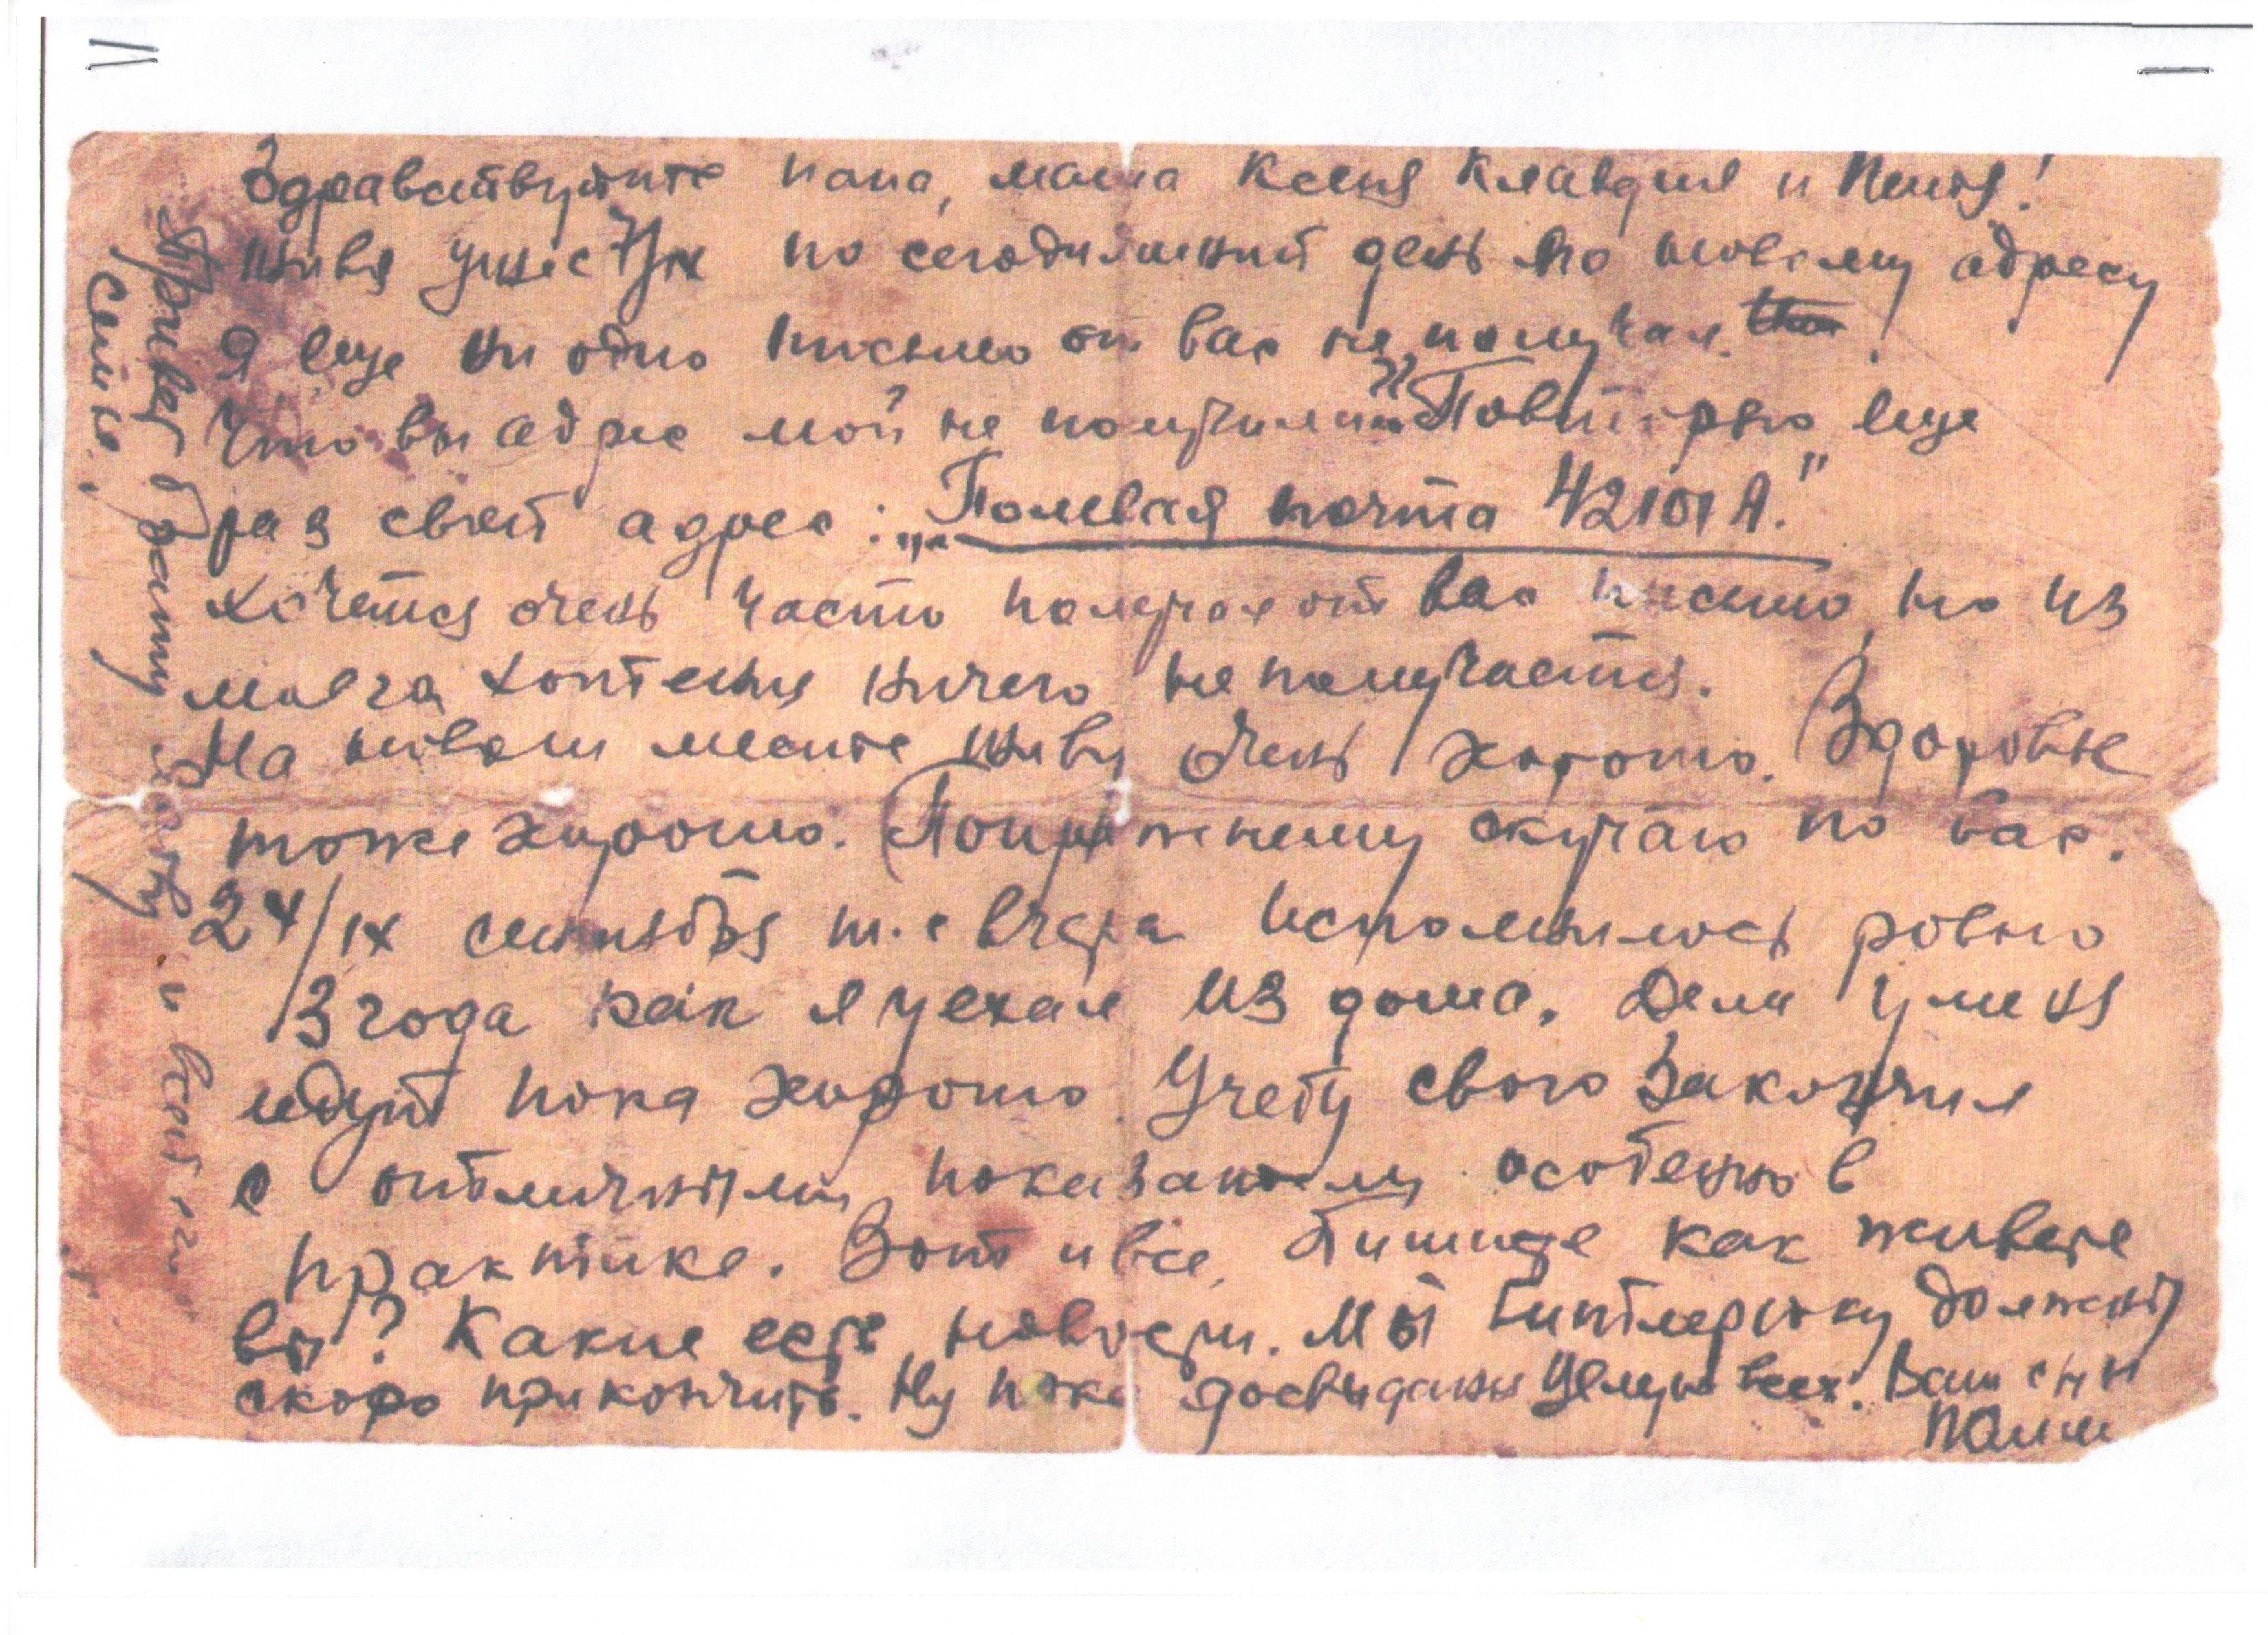 Здравствуйте папа, мама Ксеня Клавдия и Петя!
живя уже по сегодняшний день по новому адресу
я еще ни одно письмо от вас не получал.
Что вы адрес мой не получили Повторяю еще
раз свой адрес: „Полевая почта 42101 А."
Хочется очень часто получат от вас письмо, но из
моего хотенья ничего не получается.
На новом месте живу очень хорошо. Здоровье
тоже хорошо. По прежнему скучаю по вас.
24/IX сентября т.е вчера исполнилось ровно
3 года как я уехал из дома. Дела у меня
идут пока хорошо. Учебу свою закончил
с отличными показателями особенно в
практике. Вот и все, Пишите как живете
вы? Какие есть новости. Мы Гитлерюку должны
скоро прикончить. Ну пока досвидания Целую всех. Ваш сын
Привет брату и всей его
семье.